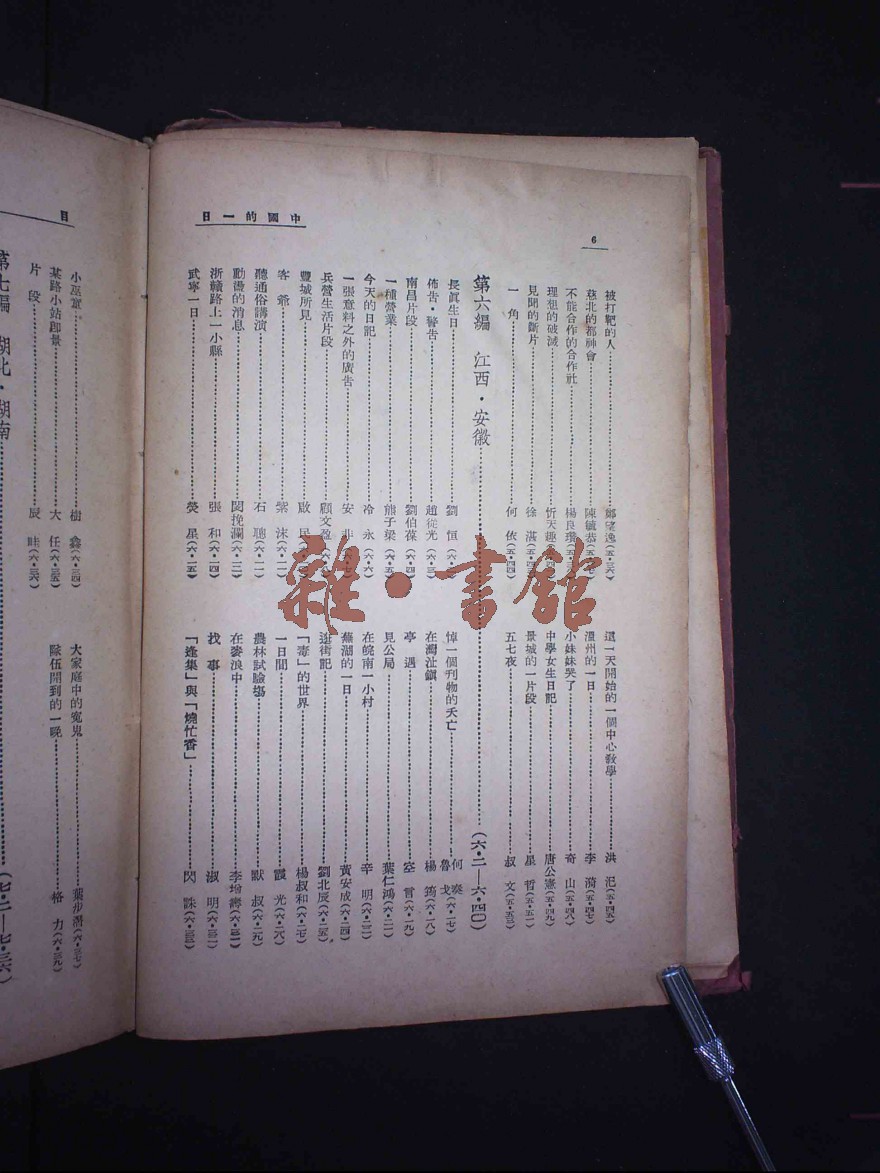 中國的一日
6
被打靶的人 鄭望逸(五·三六)
慈北的都神會 陳毓恭(五·三七)
不能合作的合作社 楊良瓚
理想的破滅 忻天趣
見聞的斷片 徐湛
一角 何依(五·四四)
這一天開始的一個中心教學 洪汜(五·四五)
漳州的一日 李漪(五·四七)
小妹妹哭了 奇山(五·四八)
中學女生日記 唐公憲(五·四九)
景城的一片段 星哲(五·五一)
五七夜 叔文(五·五三)
第六編 江西·安徽 (六·二—六·四〇)
長眞生日 劉恒
佈告·警告 趙從光
南昌片段 劉伯葆(六·四)
一種營業 熊子梁(六·五)
今天的日記 冷永(六·六)
一張意料之外的廣告 安非
兵營生活片段 顧文盈
豐城所見 啟
客爺 紫沫
聽通俗講演 石聰(六·一一)
動盪的消息 閔挽瀾(六·一二)
浙贛路上一小縣 張和(六·一四)
武寧一日 熒星(六·一五)
悼一個刊物的夭亡 何秦 魯戈(六·一七)
在灣沚鎭 楊筠(六·一八)
亭遇 空言(六·一九)
見公局 葉仁鴻(六·二一)
在皖南一小村 辛明(六·二二)
蕪湖的一日 黃安成(六·二四)
逛街記 劉北辰(六·二五)
「毒」的世界 楊叔和(六·二七)
一日間 霞光(六·二八)
農林試驗場 默叔(六·二九)
在麥浪中 李增壽(六·三一)
找事 淑明(六·三二)
「逢集」與「燒忙香」 閃誅(六·三三)
目
樹鑫(六·三四)
某路小站卽景 大任(六·三五)
片段 辰畦(六·三六)
大家庭中的寃鬼 葉步濳(六·三七)
隊伍開到的一晚 格力(六·三九)
第七編 湖北·湖南 (七·二—七·三六)
雜·書館